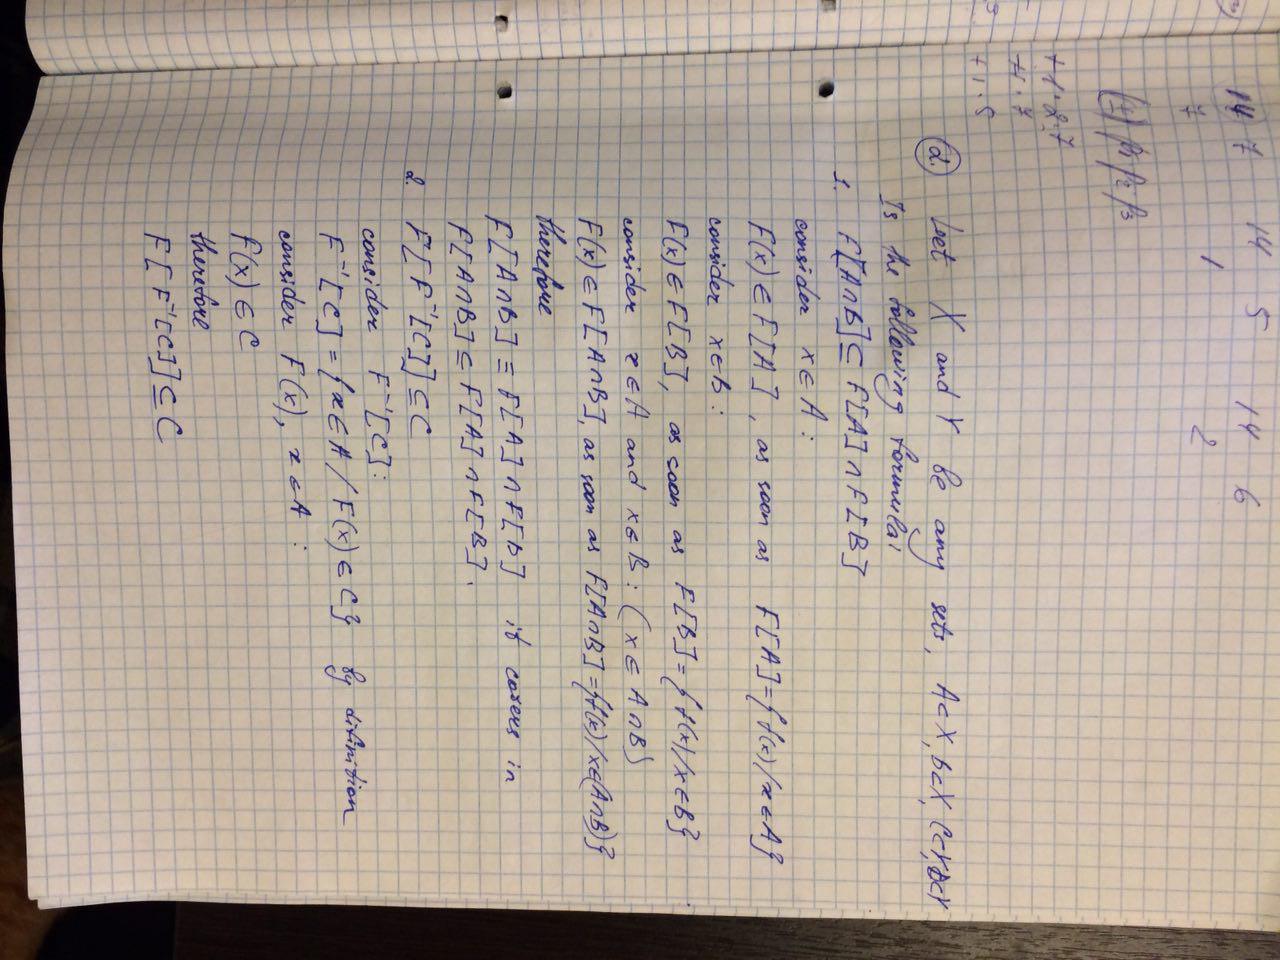 14 7 14 5 14 6
7 1 2
+1·2·7
+1·7
+1·5
2. Let X and Y be any sets, A⊂X, B⊂X, C⊂Y, D⊂Y
Is the following formula:
1. F[A∩B]⊆F[A]∩F[B]
consider x∈A:
F(x)∈F[A], as soon as F[A]={f(x)/x∈A}
consider x∈B:
F(x)∈F[B], as soon as F[B]={f(x)/x∈B}
consider x∈A and x∈B: (x∈A∩B)
F(x)∈F[A∩B], as soon as F[A∩B]={f(x)/x∈(A∩B)}
therefore
F[A∩B]≡F[A]∩F[B] it covers in
F[A∩B]⊆F[A]∩F[B].
2. F[F⁻¹[C]]⊆C
consider F⁻¹[C]:
F⁻¹[C]={x∈A/F(x)∈C} by difinition
consider F(x), x∈A:
f(x)∈C
therefore
F[F⁻¹[C]]⊆C